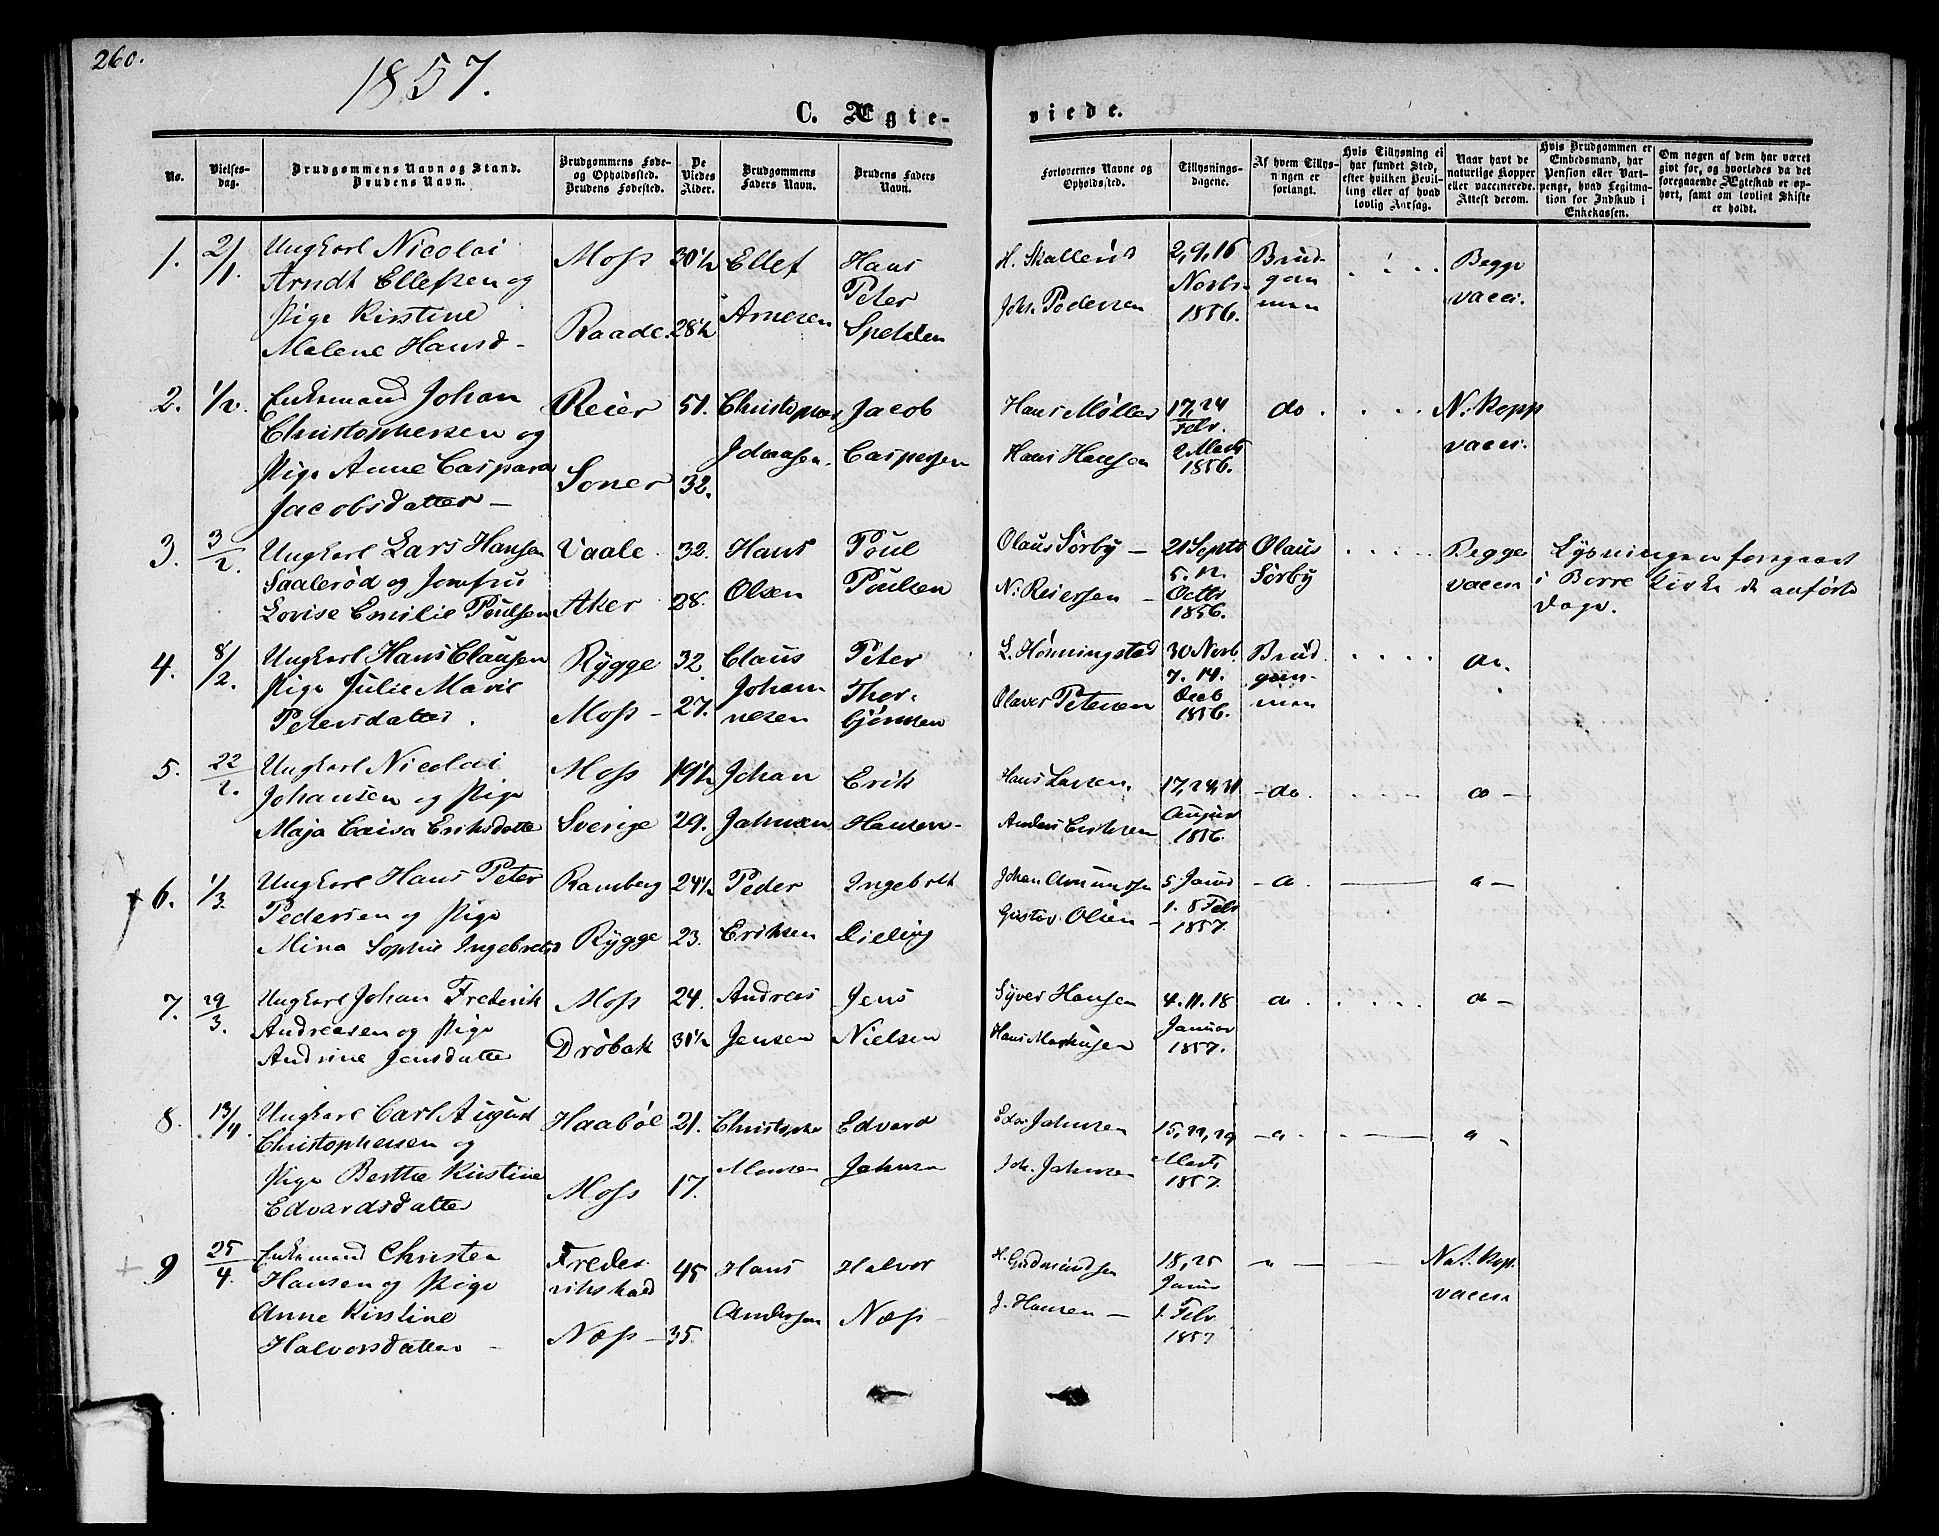 260.
1857.
C. Ægte-
viede.
No.
Vielses-
dag.
Brudgommens Navn og Stand.
Brudens Navn.
Brudgommens Føde-
og Opholdssted.
Brudens Fødested.
De
Viedes
Alder.
Brudgommens
Faders Navn.
Brudens Faders
Navn.
Forlovernes Navne og
Opholdssted.
Tillysnings-
dagene.
Af hvem Tillys-
ningen er
forlangt.
Hvis Tillysning ei
har fundet Sted,
efter hvilken Bevil-
ling eller af hvad
lovlig Aarsag.
Naar havt de
naturlige Kopper
eller vaccinerede.
Attest derom.
Hvis Brudgommen er
Embedsmand, har
Pension eller Vart-
penge, hvad Legitma-
tion for Indskud i
Enkekassen.
Om nogen af dem har været
gift før, og hvorledes da det
foregaaende Ægteskab er op-
hørt, samt om lovligt Skifte
er holdt.
1. 2/1. Ungkarl Nicolai Moss 30½ Ellef Hans H. Skallerud 2, 9, 16 Brud- Begge
Arndt Ellefsen og Peter Novbr gom vacci.
Pige Kirstine Raade. 28½ Arnesen Joh. Pedersen 1856. men
Malene Hansd - Spetalen
2. 1/2. Enkemand Johan Reier 51. Christopher Jacob Hans Møller 17, 24 do. N. Kopp
Christophersen og Febr. vacci.
Pige Anne Caspara Johansen. Caspersen Hans Hansen 2 Marts
Jacobsdatter - Soner 32. 1856.
3. 3/2. Ungkarl Lars Hansen Vaale 32. Hans Poul Olaus Sørby - 21 Septb Olaus Begge Lysningen foregaaet
Saalerød og Jomfru 5. 12. Sørby vaccin i Borre Kirke de anførte
Lovise Emilie Poulsen Aker 28. Olsen Poulsen N. Reiersen - Octbr Dage.
1856.
4. 8/2. Ungkarl Hans Clausen Rygge 32 Claus Peter L. Hønningstad 30 Novb. Brud do.
Pige Julie Marie Johan- Thor- 7. 14. gom-
Petersdatter. Moss - 27. nesen bjørnsen Olaves Petersen Decb men
1856.
5. 22/2. Ungkarl Nicolai Moss 19½ Johan Erik Hans Larsen. 17, 24, 31. - do. do -
Johansen og Pige August
Maja Caisa Eriksdatte Sverige 29. Johnsen Hansen - Anders Eriksen 1856.
+ 6. 1/3. Ungkarl Hans Peter Ramberg 24½ Peder Ingebret Johan Amundsen 5 Januar - do. do -
Pedersen og Pige 1. 8 Febr
Mina Sophie Ingebretsd Rygge 23. Eriksen Dieling Gustav Olsen - 1857.
7. 29/3. Ungkarl Johan Frederik Moss 24. Andreas Jens Syver Hansen 4. 11. 18 do. do -
Andreasen og Pige Januar
Andrine Jensdatter Drøbak 30½ Jensen Nielsen Hans Markusen 1857.
8. 13/4. Ungkarl Carl August Haabøl 21. Christophe Edvard Edv. Johnsen 15, 22, 29 - do. do -
Christophersen og Marts
Pige Berthe Kirstine Moss 17. Monsen Johnsen Joh. Johnsen 1857.
Edvardsdatter
+ 9 25/4. Enkemand Christen Freder 45 Hans Halvor H. Gudmundsen 18, 25 Nat. Kop.
Hansen og Pige rikshald Januar vaccin
Anne Kirstine Andersen Næss - J. Hansen - 1. Febr
Halvorsdatter - Næss - 35. 1857